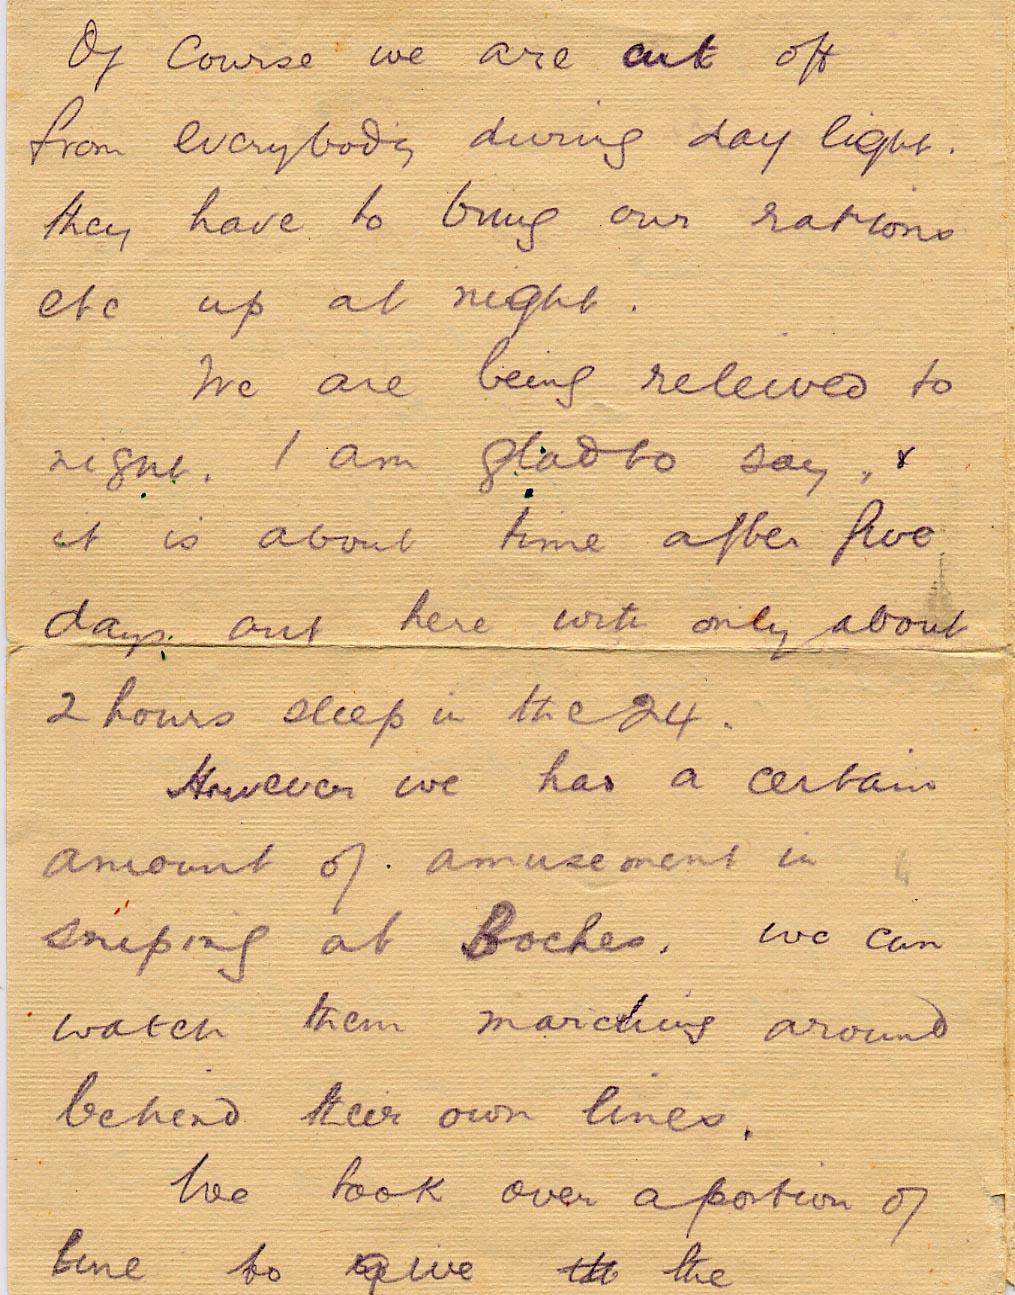 Of Course we are cut off
from everybody during day light.
they have to bring our rations
etc up at night.
We are being releived to
night. I am glad to say, &
it is about time after five
days out here with only about
2 hours sleep in the 24.
However we has a certain
amount of amusement in
sniping at Boches. we can
watch them marching around
behind their own lines.
We took over a portion of
line to give the